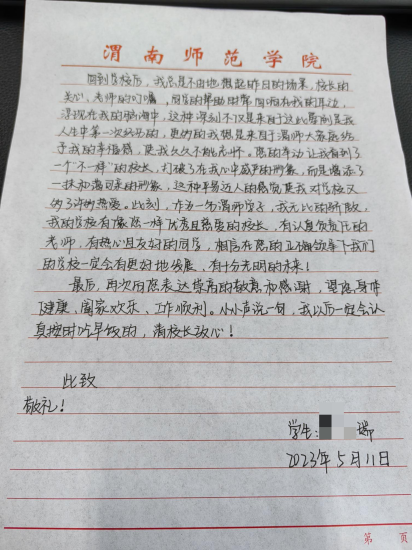 渭南师范学院
回到学校后，我总是不由地想起昨日的场景，校长的
关心、老师的叮嘱，同学的帮助时常回响在我的耳边，
浮现在我的脑海中，这种深刻不仅是来自于这此
人生中第一次的，更多的我想是来自于渭师大家庭给
予我的幸福感，更我久久不能忘怀。您的举动让我看到了
一个“不一样”的校长，打破了在我心中威严的形象，而是增添了
一抹和蔼可亲的形象，这种平易近人的感觉使我对学校又
多了许的热爱。此刻，作为一名渭师学子，我无比的骄傲，
我的学校有像您一样优秀且慈爱的校长，有认真负责任的
老师，有热心且友好的同学，相信在您的正确领导下我们
的学校一定会有更好地发展、有十分光明的未来！
最后，再次向您表达崇高的敬意和感谢，望您身体
健康、阖家欢乐、工作顺利。小小声说一句，我以后一定会认
真按时吃早饭的，请校长放心！
此致
敬礼！
学生：瑞
2023年5月11日
第 页